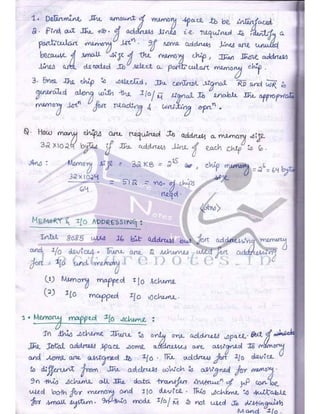 1. Determine the amount of memory space to be interfaced
2. Find out the no. of address lines i.e required to identify a
particular memory locn. If some address lines are unused
because of small size of the memory chip, then those address
lines are decoded to select a particular memory chip.
3. Once the chip is selected, the control signal RD and WR is
generated along with the I/O/M signal to enable the appropriate
memory locn for reading & writing opn.
Q. How many chips are required to address a memory of size
32x1024 bytes if the address line of each chip is 6.
Ans : Memory size = 32 KB = 2^15 , chip memory size = 2^6 = 64 bytes
32x1024
64
= 512 = no. of chips reqd
<ans>
MEMORY & I/O ADDRESSING :
Intel 8085 uses 16 bit address bus for addressing memory
and I/O devices. There are 2 schemes used for addressing
for I/O and memory
(1) Memory mapped I/O scheme
(2) I/O mapped I/O scheme.
1. Memory mapped I/O scheme :
In this scheme there is only one address space. Out of
the total address space some addresses are assigned to memory
and some are assigned to I/O. The address for I/O device
is different from the address which is assigned for memory.
In this scheme all the data transfer instrucn of μP can be
used both for memory and I/O device. This scheme is suitable
for small system. In this mode I/O/M is not used to distinguish
M and I/O.